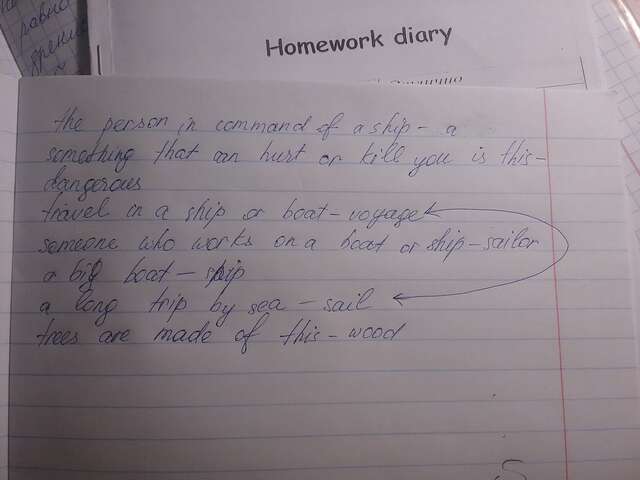 равно
Homework diary
the person in command of a ship - a
something that can hurt or kill you is this -
dangerous
travel in a ship or boat - voyage
someone who works on a boat or ship - sailor
a big boat - ship
a long trip by sea - sail
trees are made of this - wood